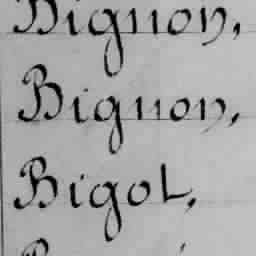 Bignon,
Bignon,
Bigot,